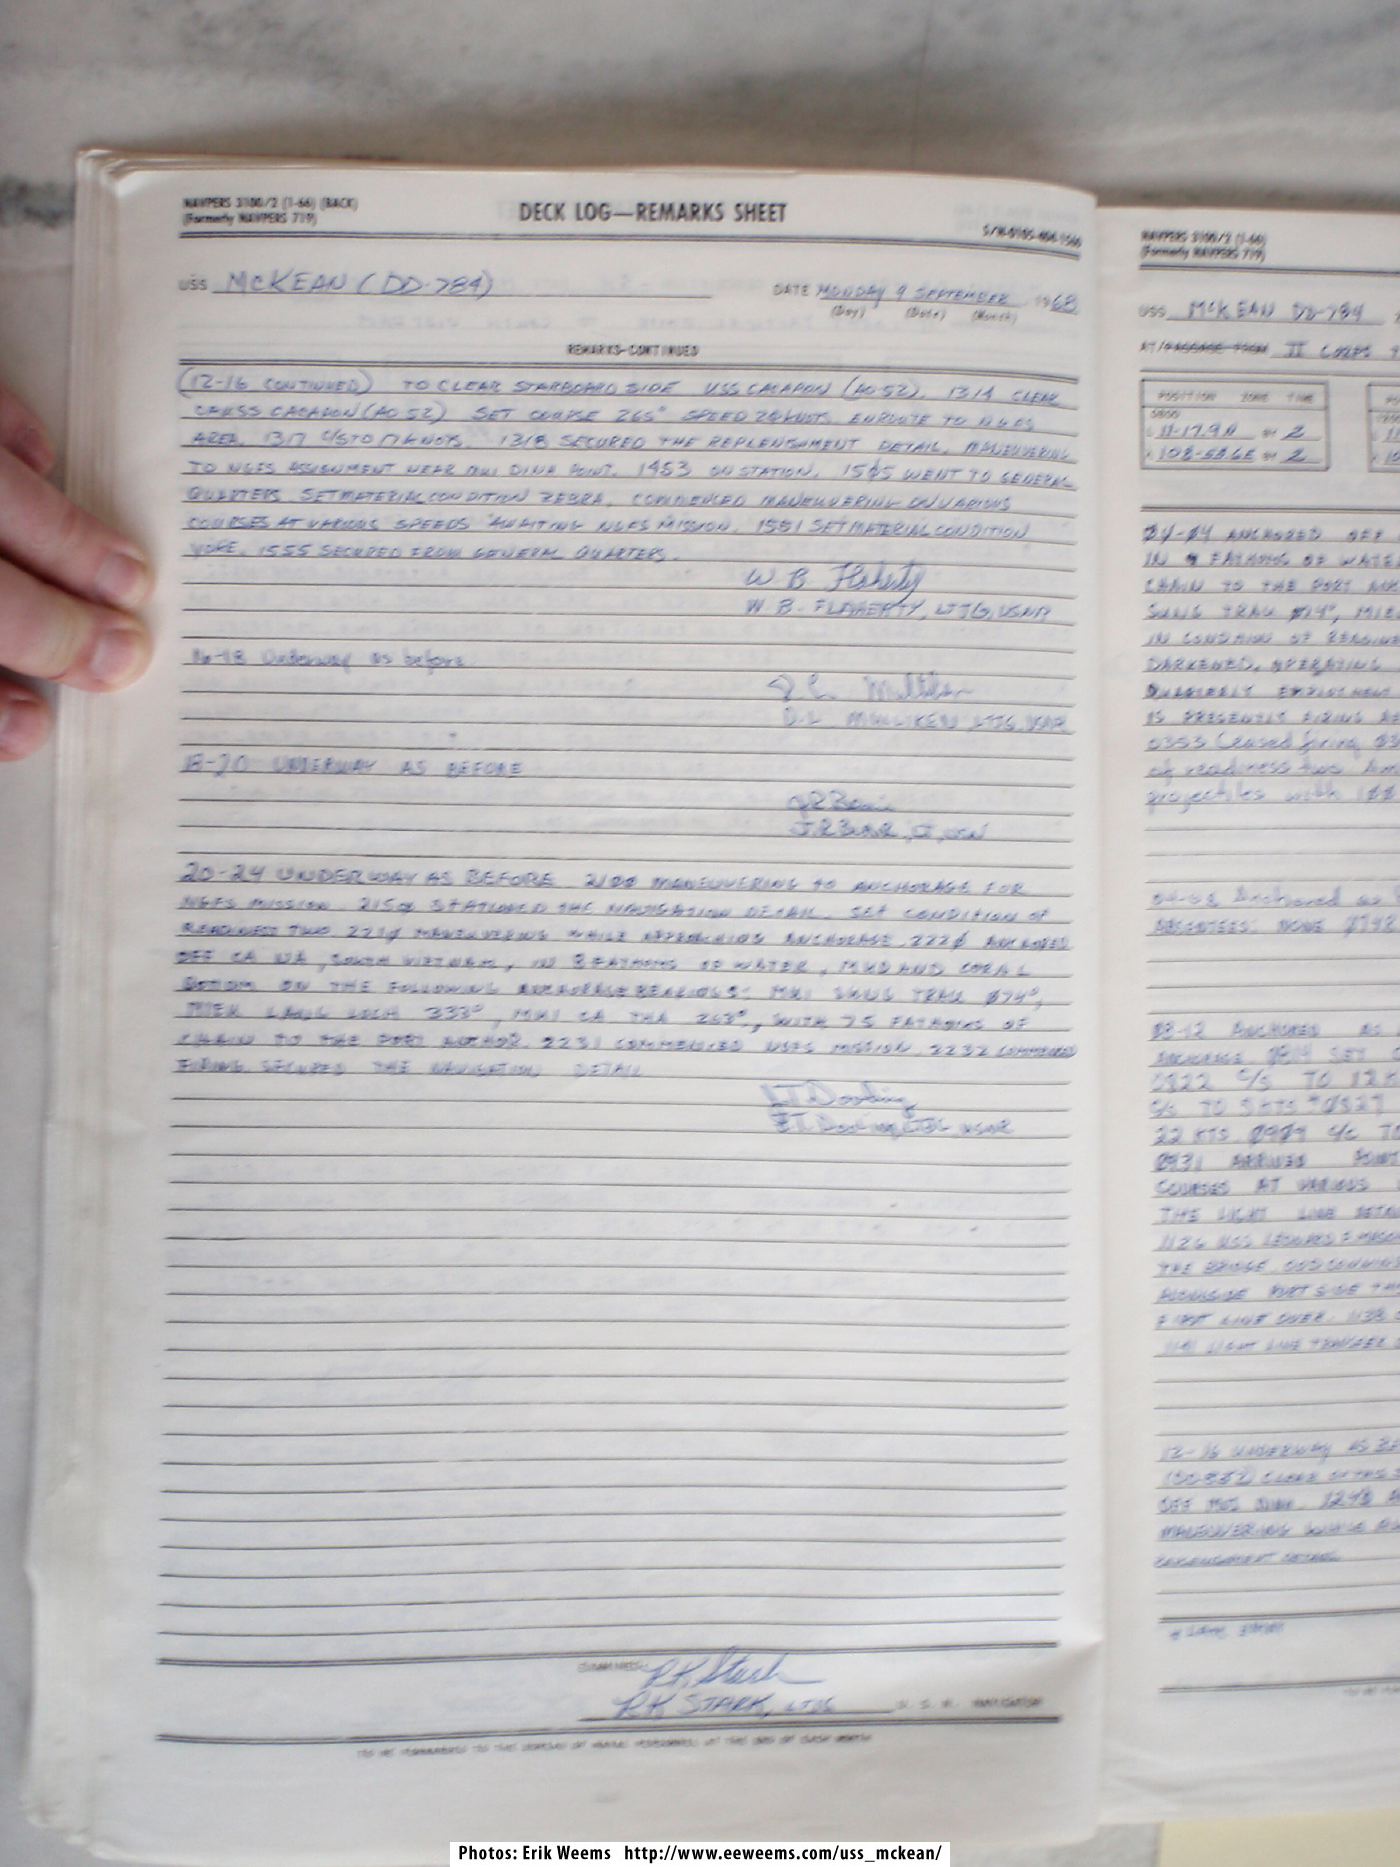 NAVPERS 3100/2 (1-66) (BACK)
(Formerly NAVPERS 719)
DECK LOG—REMARKS SHEET
S/N-0105-404-1566
USS McKEAN (DD-784)
DATE MONDAY 9 SEPTEMBER 1968
(Day) (Date) (Month)
REMARKS-CONTINUED
(12-16 CONTINUED) TO CLEAR STARBOARD SIDE USS CACAPON (AO-52). 1314 CLEAR
USS CACAPON (AO 52) SET COURSE 265° SPEED KNOTS ENROUTE TO NGFS
AREA. 1317 C/S TO 17 KNOTS. 1318 SECURED THE REPLENISHMENT DETAIL, MANEUVERING
TO NGFS ASSIGNMENT NEAR MUI DINH POINT. 1453 ON STATION. 15Ø5 WENT TO GENERAL
QUARTERS. SET MATERIAL CONDITION ZEBRA. COMMENCED MANEUVERING ON VARIOUS
COURSES AT VARIOUS SPEEDS AWAITING NGFS MISSION. 1551 SET MATERIAL CONDITION
YOKE. 1555 SECURED FROM GENERAL QUARTERS.
W B Flaherty
W. B. FLAHERTY, LTJG, USNR
16-18 Underway as before
D. L. MILLIKEN, LTJG, USNR
18-20 UNDERWAY AS BEFORE
J.R. LT, USN
20-24 UNDERWAY AS BEFORE 21ØØ MANEUVERING TO ANCHORAGE FOR
NGFS MISSION. 215Ø STATIONED THE NAVIGATION DETAIL. SET CONDITION OF
READINESS TWO. 221Ø MANEUVERING WHILE APPROACHING ANCHORAGE. 222Ø ANCHORED
OFF CA NA, SOUTH VIETNAM, IN 8 FATHOMS OF WATER, MUD AND CORAL
BOTTOM ON THE FOLLOWING ANCHORAGE BEARINGS: MUI SUNG TRAU Ø74°,
333°, MUI CA THA 263°, WITH 75 FATHOMS OF
CHAIN TO THE PORT ANCHOR. 2231 COMMENCED NGFS MISSION. 2232 COMMENCED
FIRING. SECURED THE NAVIGATION DETAIL
RK Stark
RK STARK, LTJG U. S. N. NAVIGATOR
TO BE FORWARDED TO THE BUREAU OF NAVAL PERSONNEL AT THE END OF EACH MONTH
NAVPERS 3100/2 (1-66)
(Formerly NAVPERS 719)
USS McKEAN DD-784
AT/PASSAGE FROM II CORPS
POSITION ZONE TIME
0800
11-17.9N BY 2
108-58.6E BY 2
ØØ-Ø4 ANCHORED OFF
IN 9 FATHOMS OF WATER
CHAIN TO THE PORT
SUNG TRAU Ø74°,
IN CONDITION OF READINESS
DARKENED, OPERATING
QUARTERLY EMPLOYMENT
IS PRESENTLY FIRING
0353 Ceased firing
of readiness two
projectiles with
04-08 Anchored as
ABSENTEES: NONE
Ø8-12 ANCHORED AS
ANCHORAGE. Ø814 SET
0822 C/S TO 12 K
C/S TO 5 KTS 0827
22 KTS. Ø9Ø9 C/C TO
Ø931 ARRIVED POINT
COURSES AT VARIOUS
THE LIGHT LINE
1126 USS LEONARD F MASON
THE BRIDGE
ALONGSIDE PORT SIDE
FIRST LINE OVER. 1138
1141 LIGHT LINE TRANSFER
12-16 UNDERWAY AS
(DD-852) CLEAR
OFF MUI DINH. 1248
MANEUVERING WHILE
Photos: Erik Weems http://www.eeweems.com/uss_mckean/